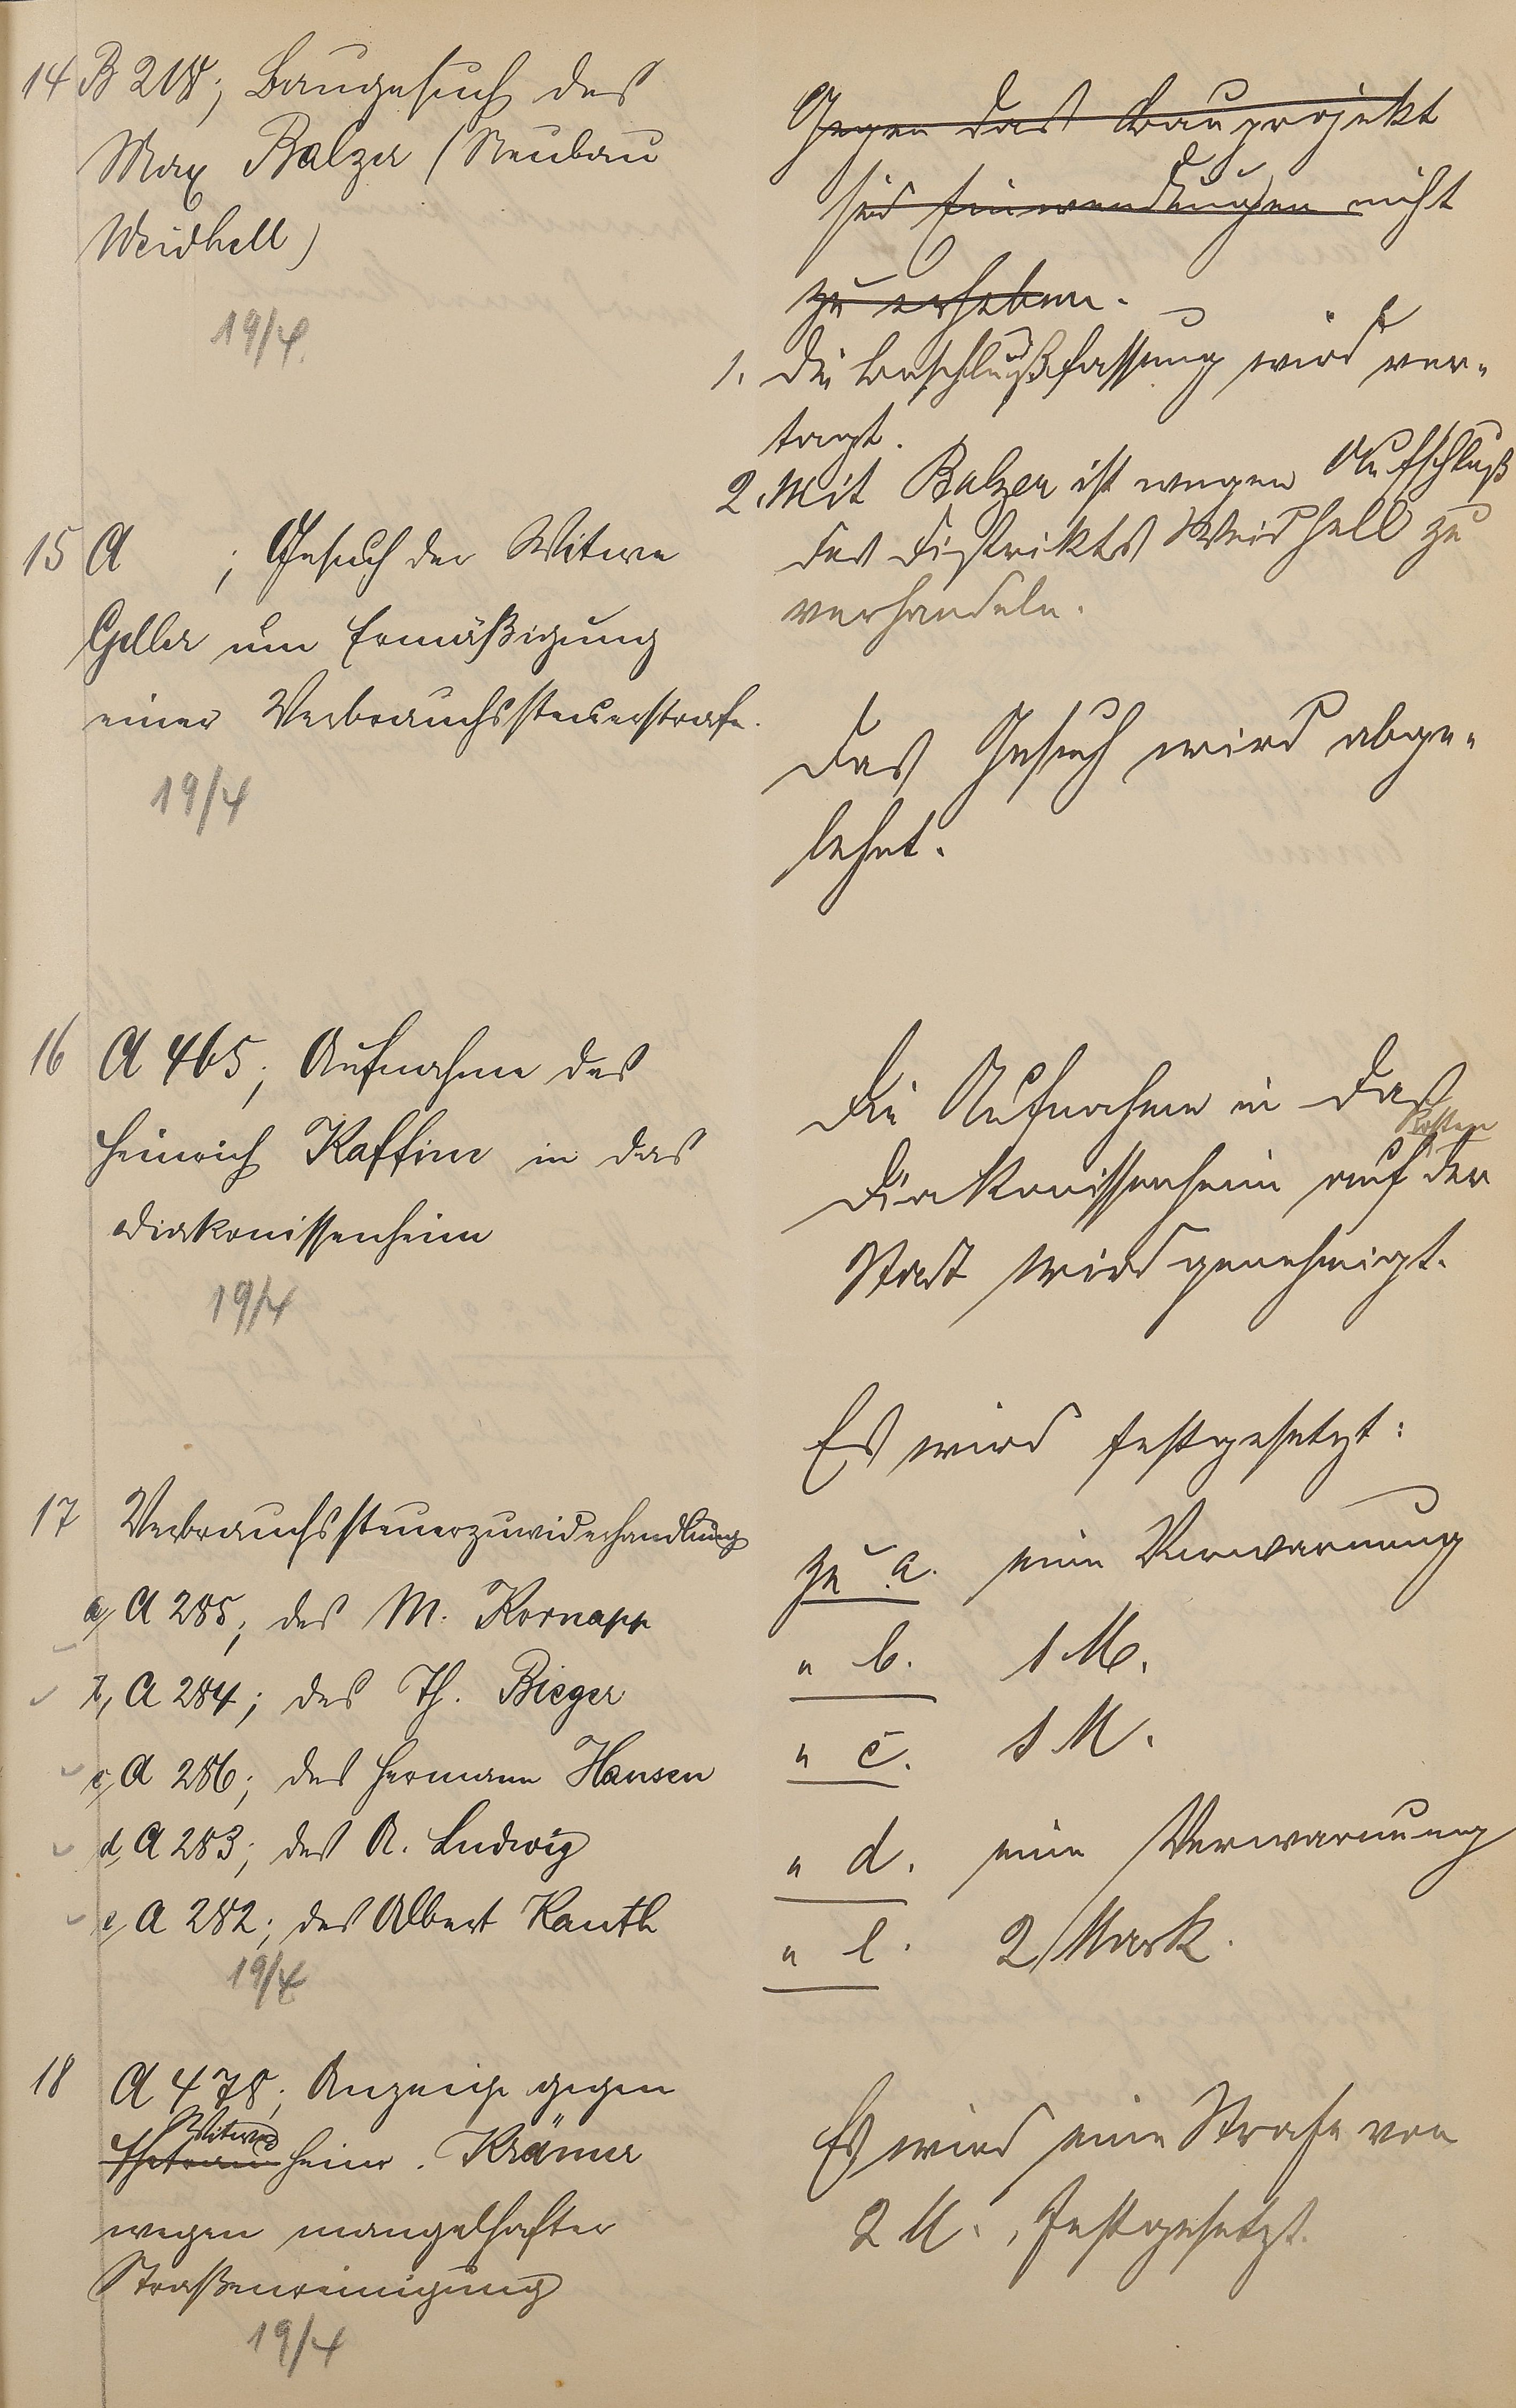 14 B 218; Baugesuch des
Max Balzer (Neubau
Weidhell)
19/4.
Gegen das Bauprojekt
sind Einwendungen nicht
zu erheben.
1. Die Beschlußfassung wird ver-
tagt.
2. Mit Balzer ist wegen Aufschluß
des Distrikts Weidhell zu
verhandeln.
15 A ; Gesuch der Witwe
Geller um Ermäßigung
einer Verbrauchssteuerstrafe.
19/4
Das Gesuch wird abge-
lehnt.
16 A 465; Aufnahme des
Heinrich Kaffine in das
Diakonissenheim
19/4
Die Aufnahme in das
Kosten
Diakonissenheim auf der
Stadt wird genehmigt.
17 Verbrauchssteuerzuwiderhandlung
a, A 285; des M. Kornapp
b, A 284; des Th. Bieger
c, A 286; des Hermann Hansen
d, A 283; des A. Ludwig
e, A 282; des Albert Kauth
19/4
Es wird festgesetzt:
zu a. eine Verwarnung
" b. 1 M.
" c. 1 M.
" d. eine Verwarnung
" e. 2 Mark.
18 A 478; Anzeige gegen
Witwe
Ehefrau Heinr. Krämer
wegen mangelhafter
Straßenreinigung
19/4
Es wird eine Strafe von
2 M. festgesetzt.